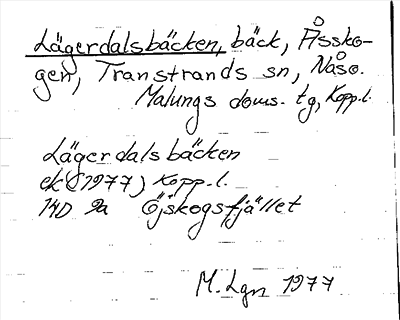 Lägerdalsbäcken, bäck, Åssko-
gen, Transtrands sn, Nåso.
Malungs doms. tg, Kopp.l.
Lägerdalsbäcken
ek (1977) Kopp.l.
14D 2a Öjskogsfjället
M. Lgn 1977